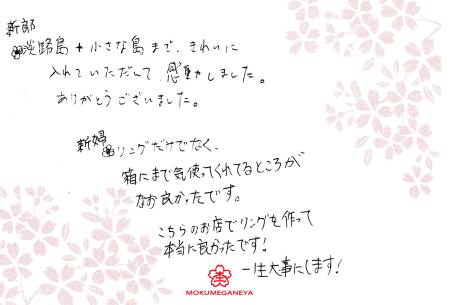 新郎
淡路島+小さな島まで、きれいに
入れていただいて感動しました。
ありがとうございました。
新婦
リングだけでなく、
箱にまで気使ってくれてるところが
なお良かったです。
こちらのお店でリングを作って
本当に良かったです!
一生大事にします!
MOKUMEGANEYA